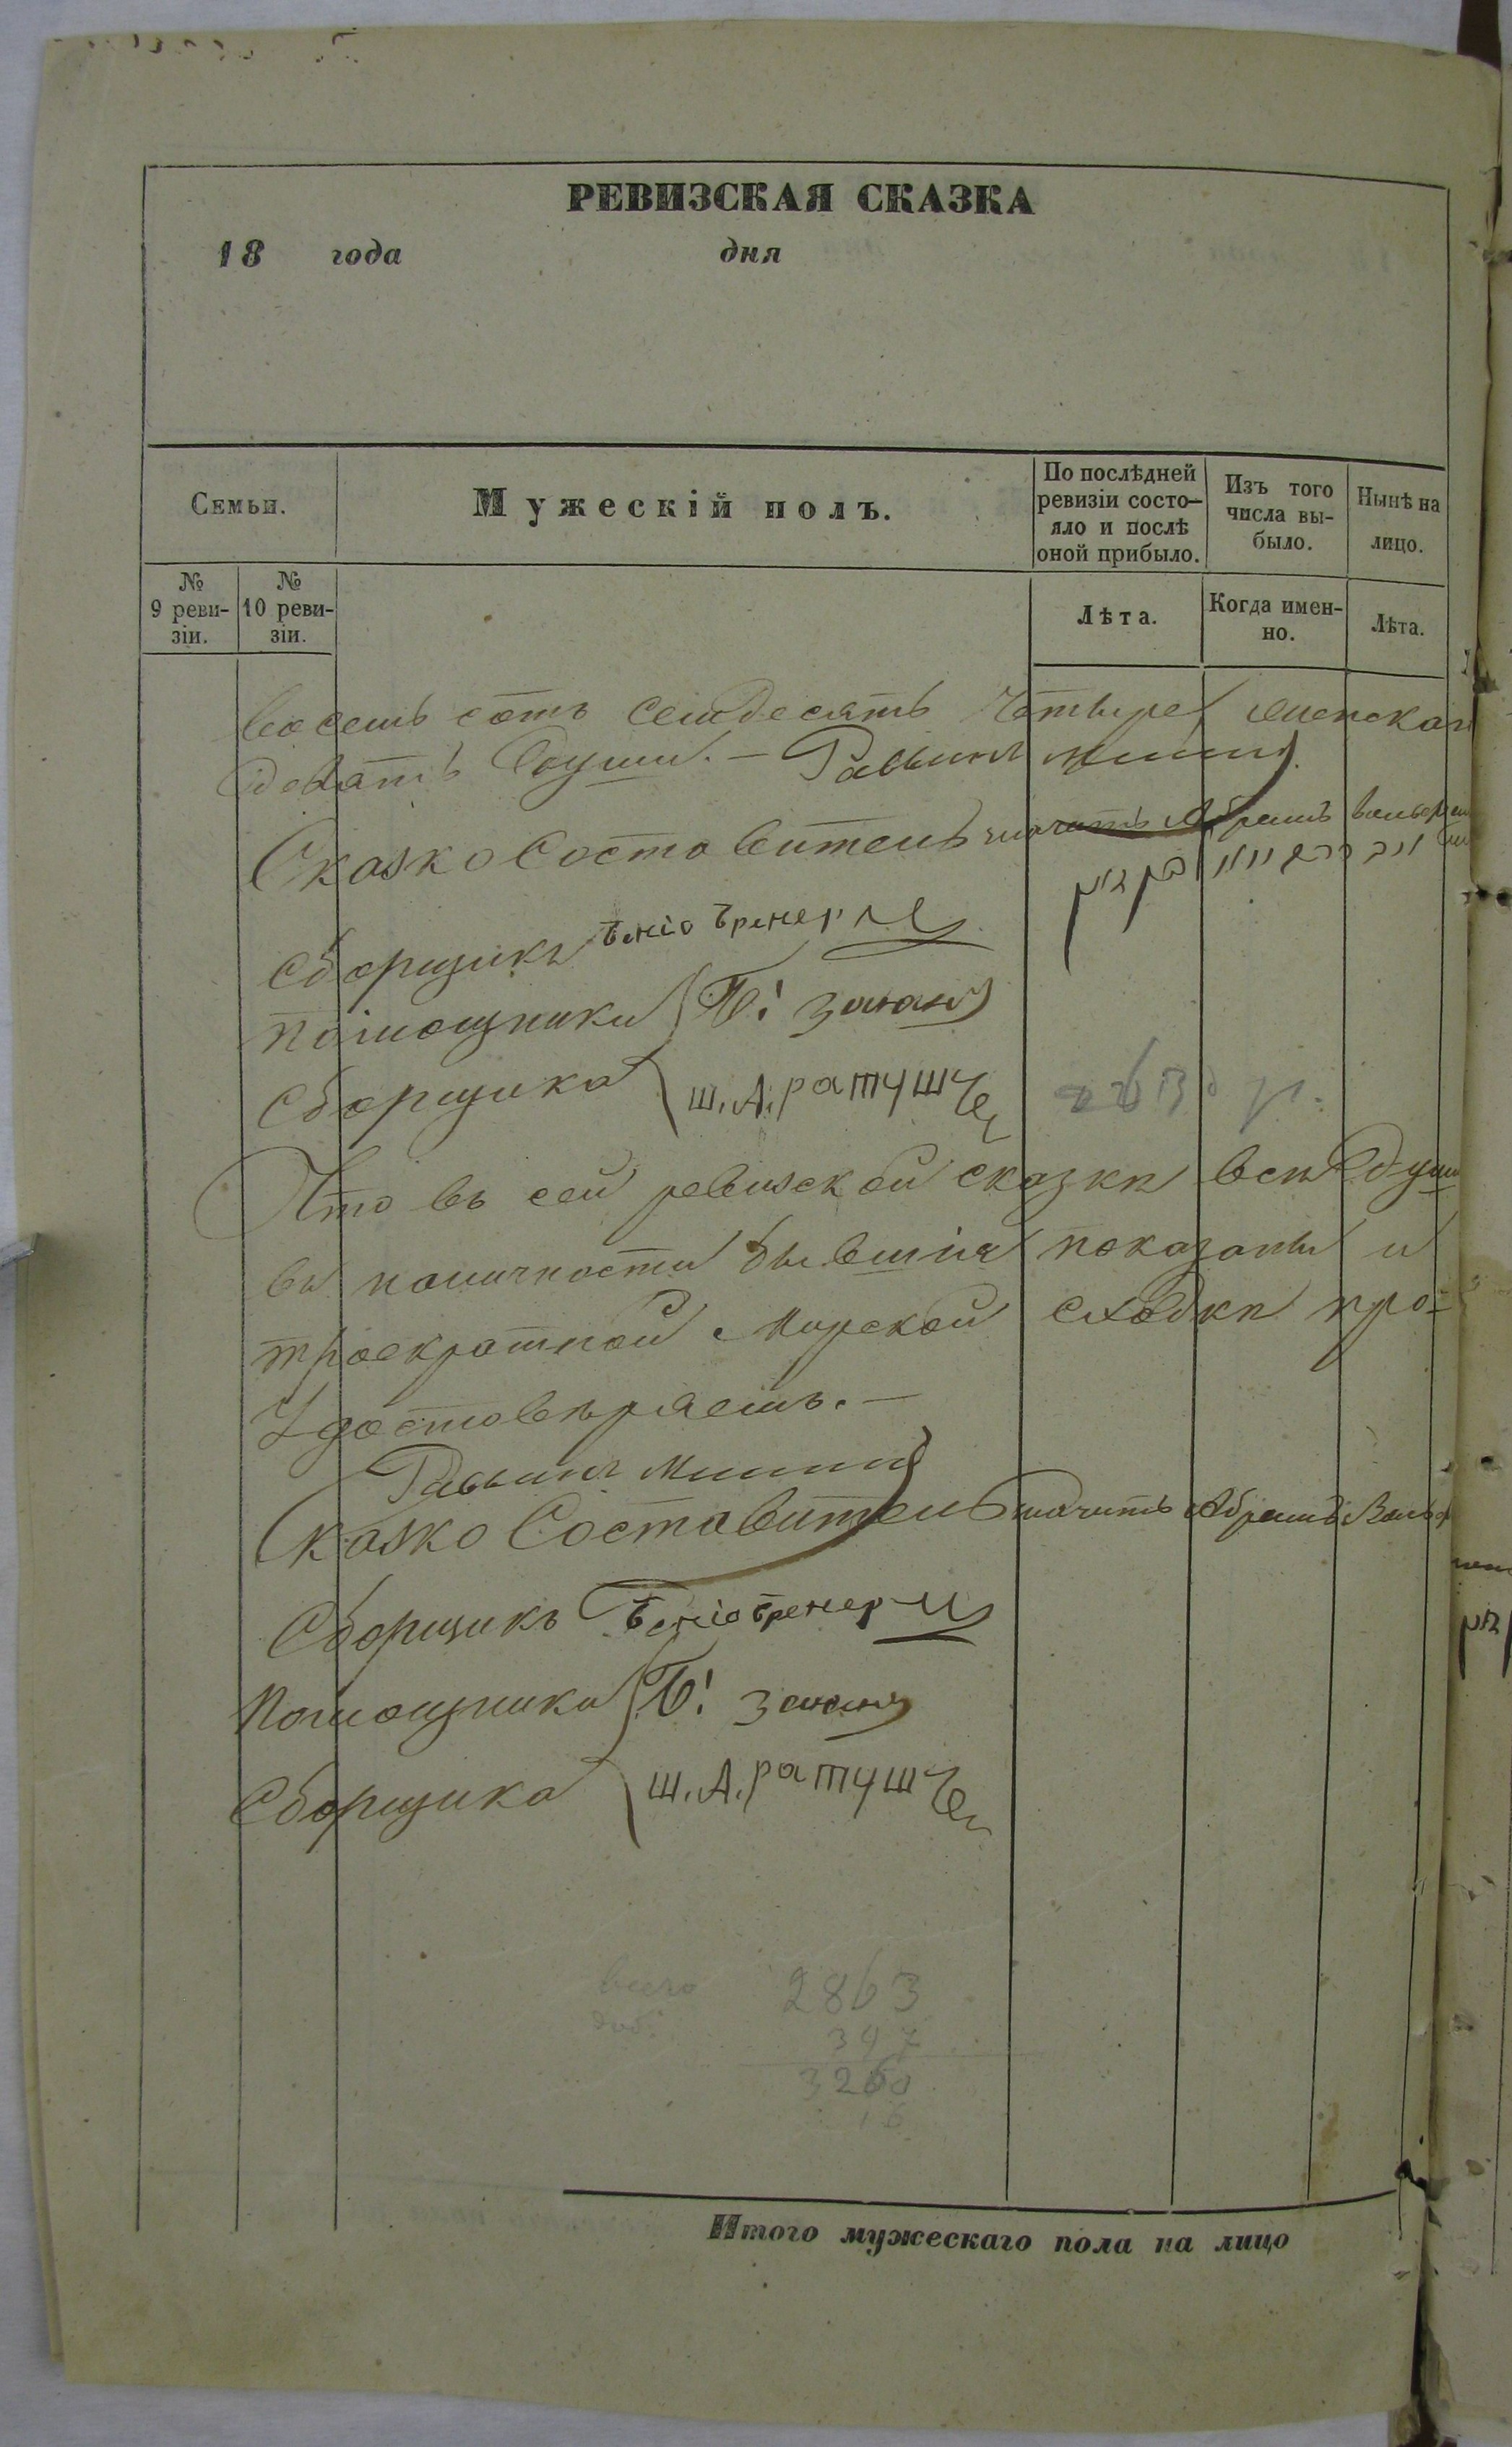 РЕВИЗСКАЯ СКАЗКА
18 года дня
Семьи.
Мужескій полъ.
По послѣдней ревизіи состо-
яло и послѣ
оной прибыло.
Изъ того
числа вы-
было.
Нынѣ на
лицо.
№
9 реви-
зіи.
№
10 реви-
зіи.
Лѣта.
Когда имен-
но.
Лѣта.
восемь сотъ семдесятъ четыре женскаг
девять души. — Равинъ
Сказко Составитель значитъ Абрамъ
Сборщикъ
помощники Б:
Сборщика Ш. А. ратушче
Что въ сей ревизской сказки всѣ души
въ наличности бывшія показаны и
троекратной Мирской сходки про-
Удостовѣряемъ. —
Равинъ
Сказко Составитель значитъ Абрамъ
Сборщикъ
Помощники Б:
Сборщика Ш. А. ратушче
всего 2863
347
3260
16
Итого мужескаго пола на лицо